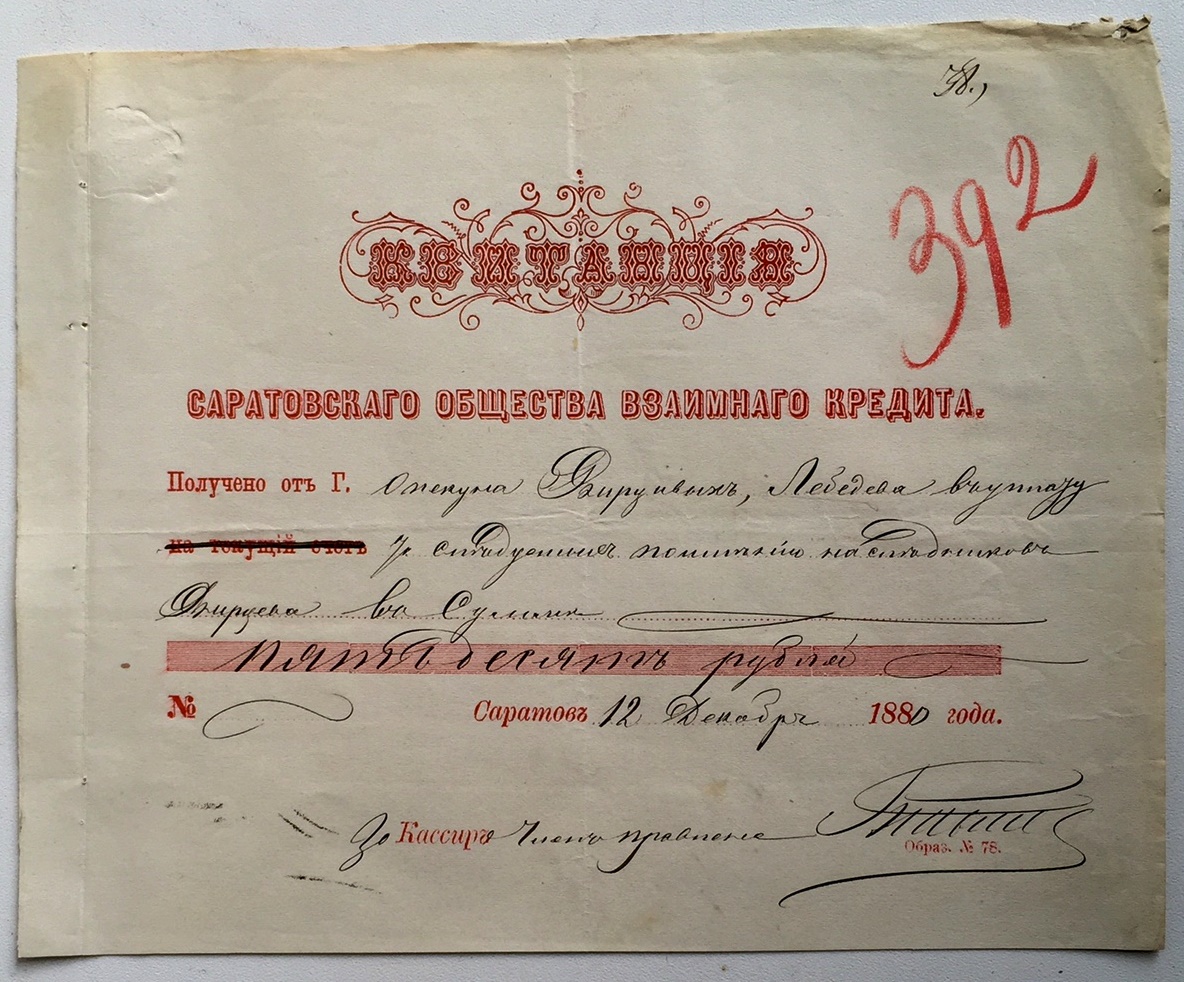 392
КВИТАНЦІЯ
САРАТОВСКАГО ОБЩЕСТВА ВЗАИМНАГО КРЕДИТА.
Получено отъ Г. опекуна Фирцивыхъ, Лебедева въ уплату
на текущій счетъ наслѣдниковъ
Фирцева въ Сумме
пятьдесятъ рублей
№ Саратовъ 12 Декабря 1880 года.
За Кассира Членъ правленія
Образ. № 78.